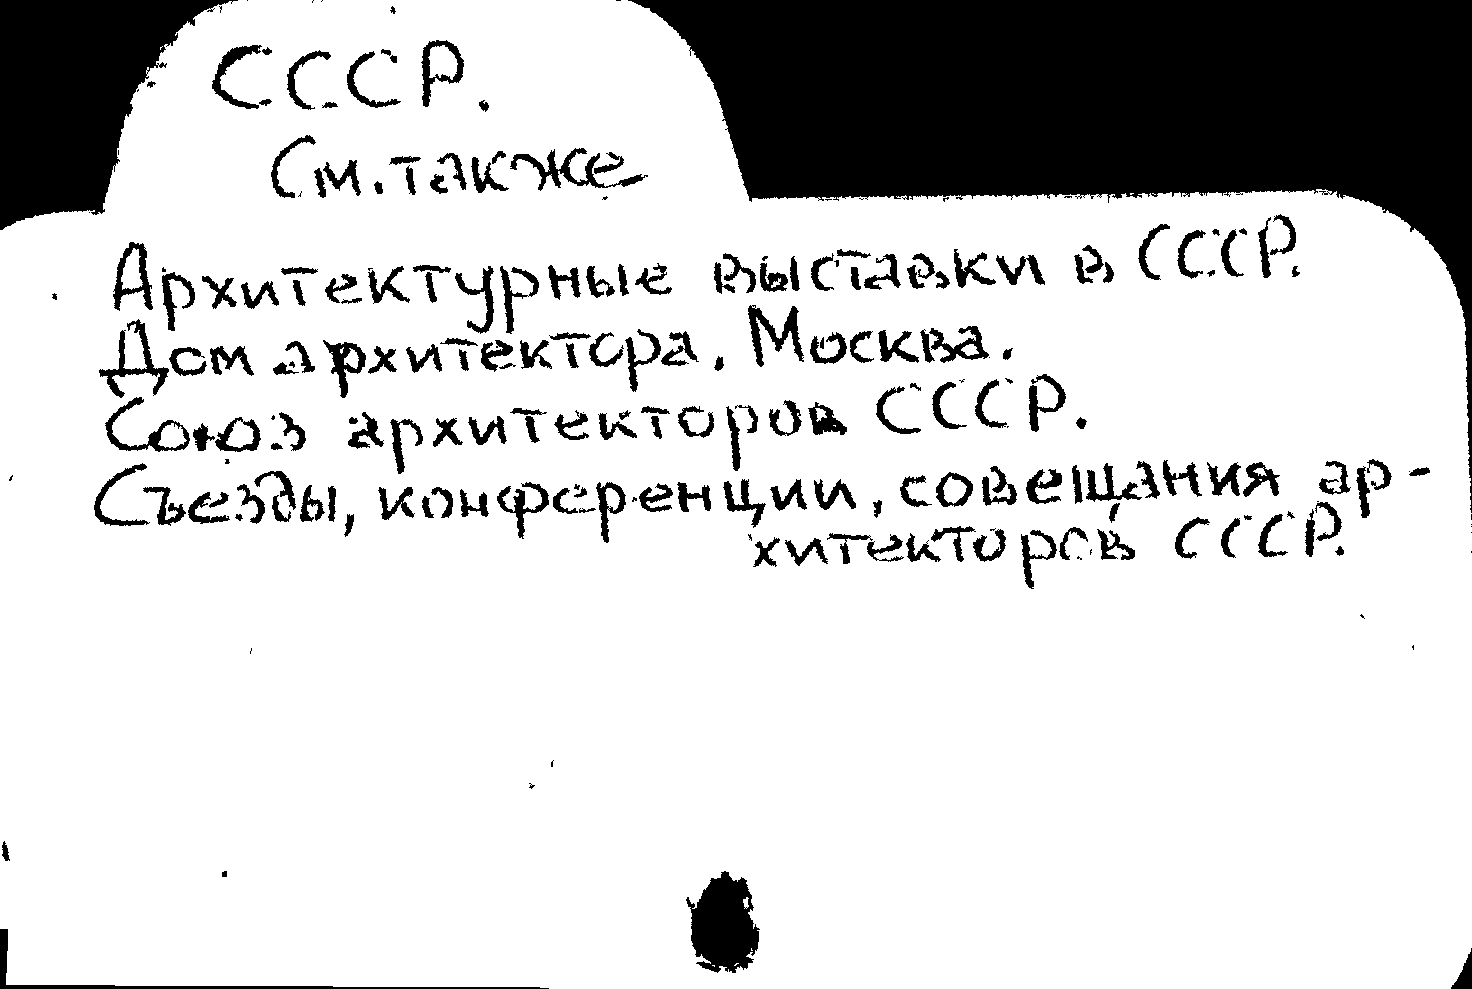 СССР.
См. также
Архитектурные выставки в СССР.
Дом архитектора. Москва.
Союз архитекторов СССР.
Съезды, конференции, совещания ар-
хитекторов СССР.